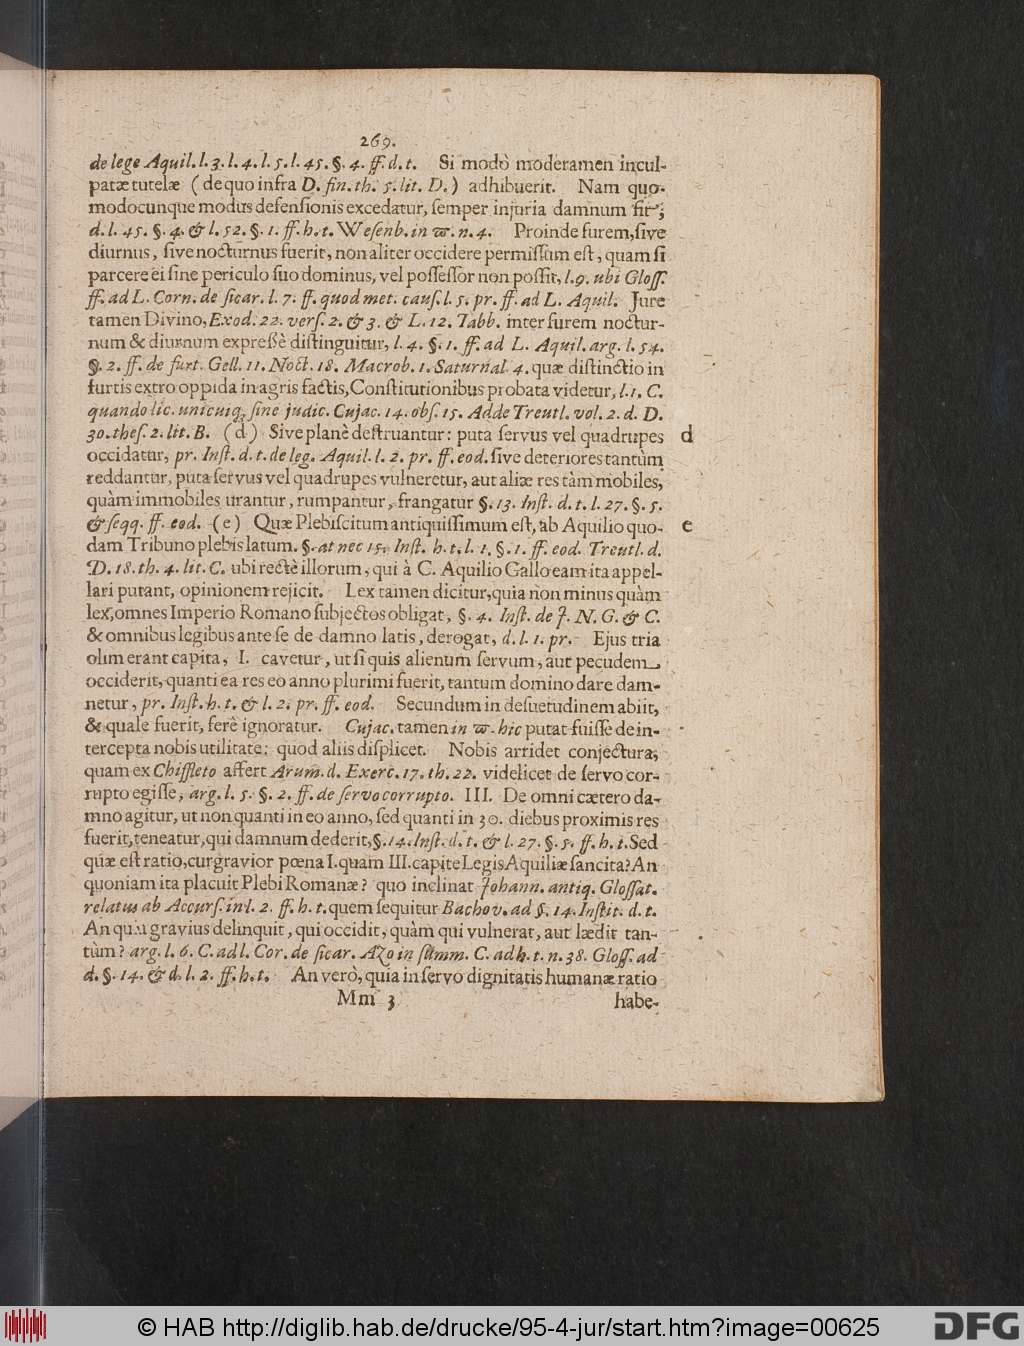 269.
de lege Aquil. l. 3. l. 4. l. 5. l. 45. §. 4. ff. d. t. Si modò moderamen incul-
patæ tutelæ ( de quo infra D. fin. th. 5. lit. D. ) adhibuerit. Nam quo-
modocunque modus defensionis excedatur, semper injuria damnum fit;
d. l. 45. §. 4. & l. 52. §. 1. ff. h. t. Wesenb. in π. n. 4. Proinde furem, sive
diurnus, sive nocturnus fuerit, non aliter occidere permissum est, quam si
parcere ei sine periculo suo dominus, vel possessor non possit, l. 9. ubi Gloss.
ff. ad L. Corn. de sicar. l. 7. ff. quod met. caus. l. 5. pr. ff. ad L. Aquil. Jure
tamen Divino, Exod. 22. vers. 2. & 3. & L. 12. Tabb. inter furem noctur-
num & diurnum expressè distinguitur, l. 4. §. 1. ff. ad L. Aquil. arg. l. 54.
§. 2. ff. de furt. Gell. 11. Noct. 18. Macrob. 1. Saturnal. 4. quæ distinctio in
furtis extro oppida in agris factis, Constitutionibus probata videtur, l. 1. C.
quando lic. unicuiq; sine judic. Cujac. 14. obs. 15. Adde Treutl. vol. 2. d. D.
30. thes. 2. lit. B. ( d ) Sive planè destruantur: puta servus vel quadrupes d
occidatur, pr. Inst. d. t. de leg. Aquil. l. 2. pr. ff. eod. sive deteriores tantùm
reddantur, puta servus vel quadrupes vulneretur, aut aliæ res tàm mobiles,
quàm immobiles urantur, rumpantur, frangatur §. 13. Inst. d. t. l. 27. §. 5.
& seqq. ff. eod. ( e ) Quæ Plebiscitum antiquissimum est, ab Aquilio quo- e
dam Tribuno plebis latum. §. at nec 15. Inst. h. t. l. 1. §. 1. ff. eod. Treutl. d.
D. 18. th. 4. lit. C. ubi rectè illorum, qui à C. Aquilio Gallo eam ita appel-
lari putant, opinionem rejicit. Lex tamen dicitur, quia non minus quàm
lex, omnes Imperio Romano subjectos obligat, §. 4. Inst. de J. N. G. & C.
& omnibus legibus ante se de damno latis, derogat, d. l. 1. pr. Ejus tria
olim erant capita, I. cavetur, ut si quis alienum servum, aut pecudem
occiderit, quanti ea res eo anno plurimi fuerit, tantum domino dare dam-
netur, pr. Inst. h. t. & l. 2. pr. ff. eod. Secundum in desuetudinem abiit,
& quale fuerit, ferè ignoratur. Cujac. tamen in π. hic putat fuisse de in-
tercepta nobis utilitate: quod aliis displicet. Nobis arridet conjectura,
quam ex Chiffleto affert Arum. d. Exerc. 17. th. 22. videlicet de servo cor-
rupto egisse, arg. l. 5. §. 2. ff. de servo corrupto. III. De omni cætero da-
mno agitur, ut non quanti in eo anno, sed quanti in 30. diebus proximis res
fuerit, teneatur, qui damnum dederit, §. 14. Inst. d. t. & l. 27. §. 5. ff. h. t. Sed
quæ est ratio, cur gravior pœna I. quam III. capite Legis Aquiliæ sancita? An
quoniam ita placuit Plebi Romanæ? quo inclinat Johann. antiq. Glossat.
relatus ab Accurs. in l. 2. ff. h. t. quem sequitur Bachov. ad §. 14. Instit. d. t.
An quia gravius delinquit, qui occidit, quàm qui vulnerat, aut lædit tan-
tùm? arg. l. 6. C. ad l. Cor. de sicar. Azo in summ. C. ad h. t. n. 38. Gloss. ad
d. §. 14. & d. l. 2. ff. h. t. An verò, quia in servo dignitatis humanæ ratio
Mm 3 habe-
© HAB http://diglib.hab.de/drucke/95-4-jur/start.htm?image=00625 DFG